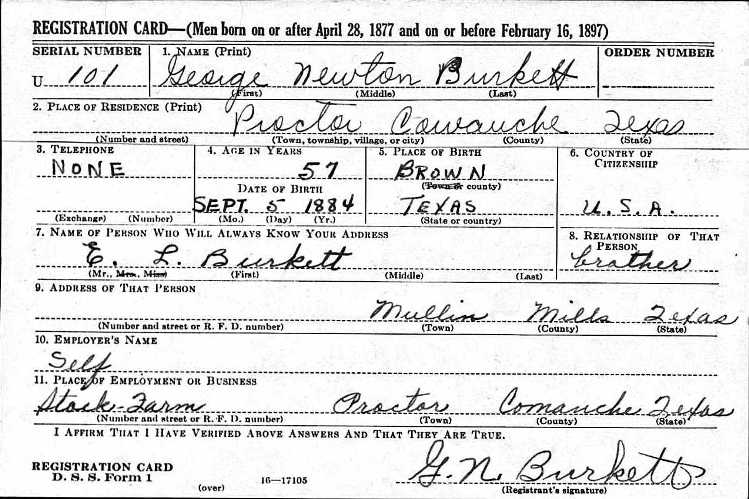 REGISTRATION CARD—(Men born on or after April 28, 1877 and on or before February 16, 1897)
SERIAL NUMBER 1. NAME (Print) ORDER NUMBER
U 101 George Newton Burkett
(First) (Middle) (Last)
2. PLACE OF RESIDENCE (Print)
Proctor Comanche Texas
(Number and street) (Town, township, village, or city) (County) (State)
3. TELEPHONE 4. AGE IN YEARS 5. PLACE OF BIRTH 6. COUNTRY OF CITIZENSHIP
NONE 57 BROWN
DATE OF BIRTH (Town or county)
SEPT. 5 1884 TEXAS U.S.A.
(Exchange) (Number) (Mo.) (Day) (Yr.) (State or country)
7. NAME OF PERSON WHO WILL ALWAYS KNOW YOUR ADDRESS 8. RELATIONSHIP OF THAT PERSON
E. L. Burkett brother
(Mr., Mrs., Miss) (First) (Middle) (Last)
9. ADDRESS OF THAT PERSON
Mullin Mills Texas
(Number and street or R. F. D. number) (Town) (County) (State)
10. EMPLOYER'S NAME
Self
11. PLACE OF EMPLOYMENT OR BUSINESS
Stock-Farm Proctor Comanche Texas
(Number and street or R. F. D. number) (Town) (County) (State)
I AFFIRM THAT I HAVE VERIFIED ABOVE ANSWERS AND THAT THEY ARE TRUE.
REGISTRATION CARD
D. S. S. Form 1 (over) 16—17105 G. N. Burkett
(Registrant's signature)